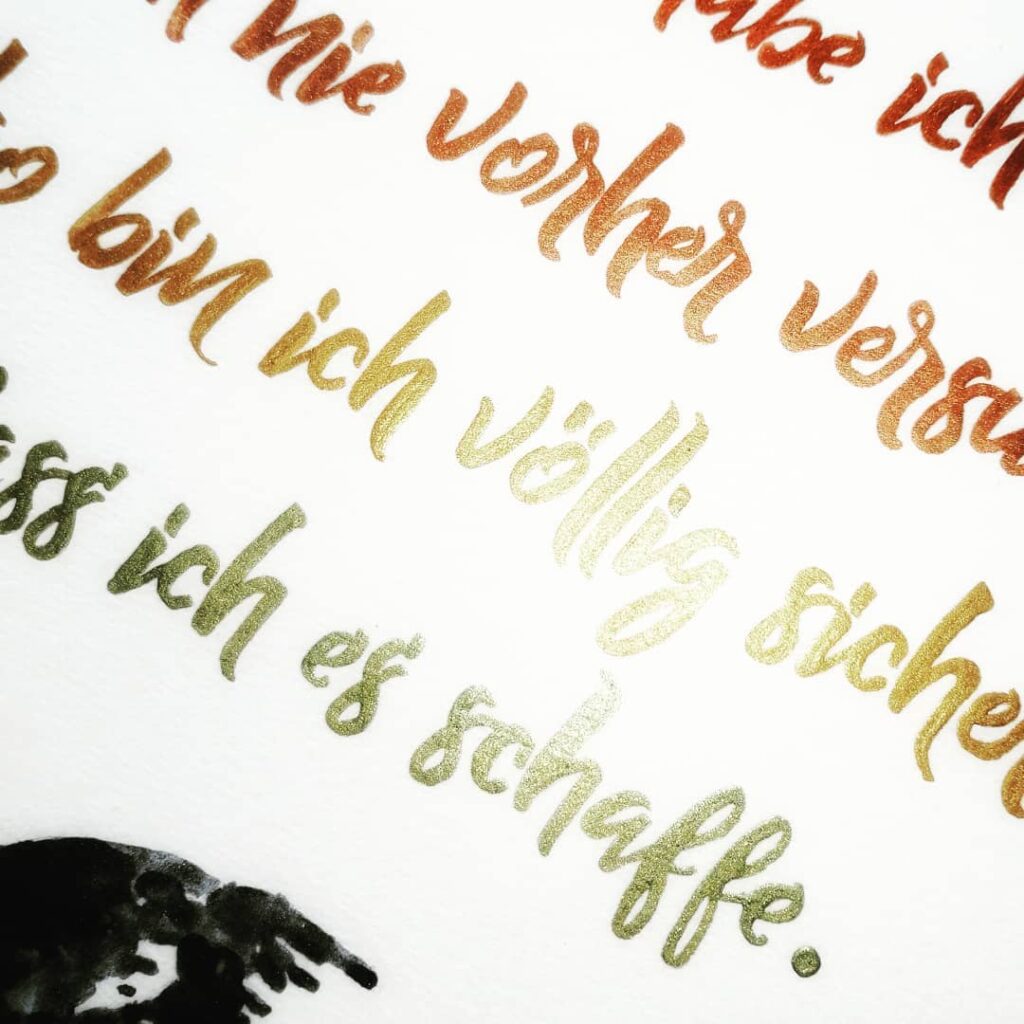 abe ich
nie vorher versu
o bin ich völlig sicher
ass ich es schaffe.